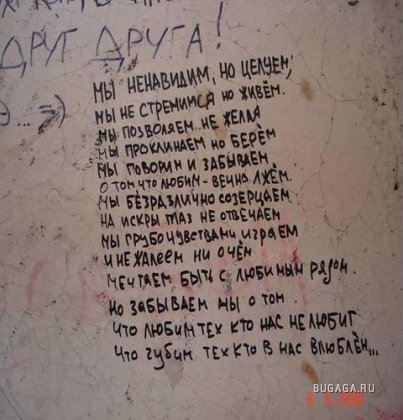 ДРУГ ДРУГА!
МЫ НЕНАВИДИМ, НО ЦЕЛУЕМ,
МЫ НЕ СТРЕМИМСЯ НО ЖИВЁМ.
МЫ ПОЗВОЛЯЕМ НЕ ЖЕЛАЯ
МЫ ПРОКЛИНАЕМ НО БЕРЁМ
МЫ ГОВОРИМ И ЗАБЫВАЕМ
О ТОМ ЧТО ЛЮБИМ - ВЕЧНО ЛЖЁМ.
МЫ БЕЗРАЗЛИЧНО СОЗЕРЦАЕМ
НА ИСКРЫ ГЛАЗ НЕ ОТВЕЧАЕМ
МЫ ГРУБО ЧУВСТВАМИ ИГРАЕМ
И НЕ ЖАЛЕЕМ НИ О ЧЁМ
МЕЧТАЕМ БЫТЬ С ЛЮБИМЫМ РЯДОМ.
НО ЗАБЫВАЕМ МЫ О ТОМ
ЧТО ЛЮБИМ ТЕХ КТО НАС НЕ ЛЮБИТ
ЧТО ГУБИМ ТЕХ КТО В НАС ВЛЮБЛЁН...
BUGAGA.RU